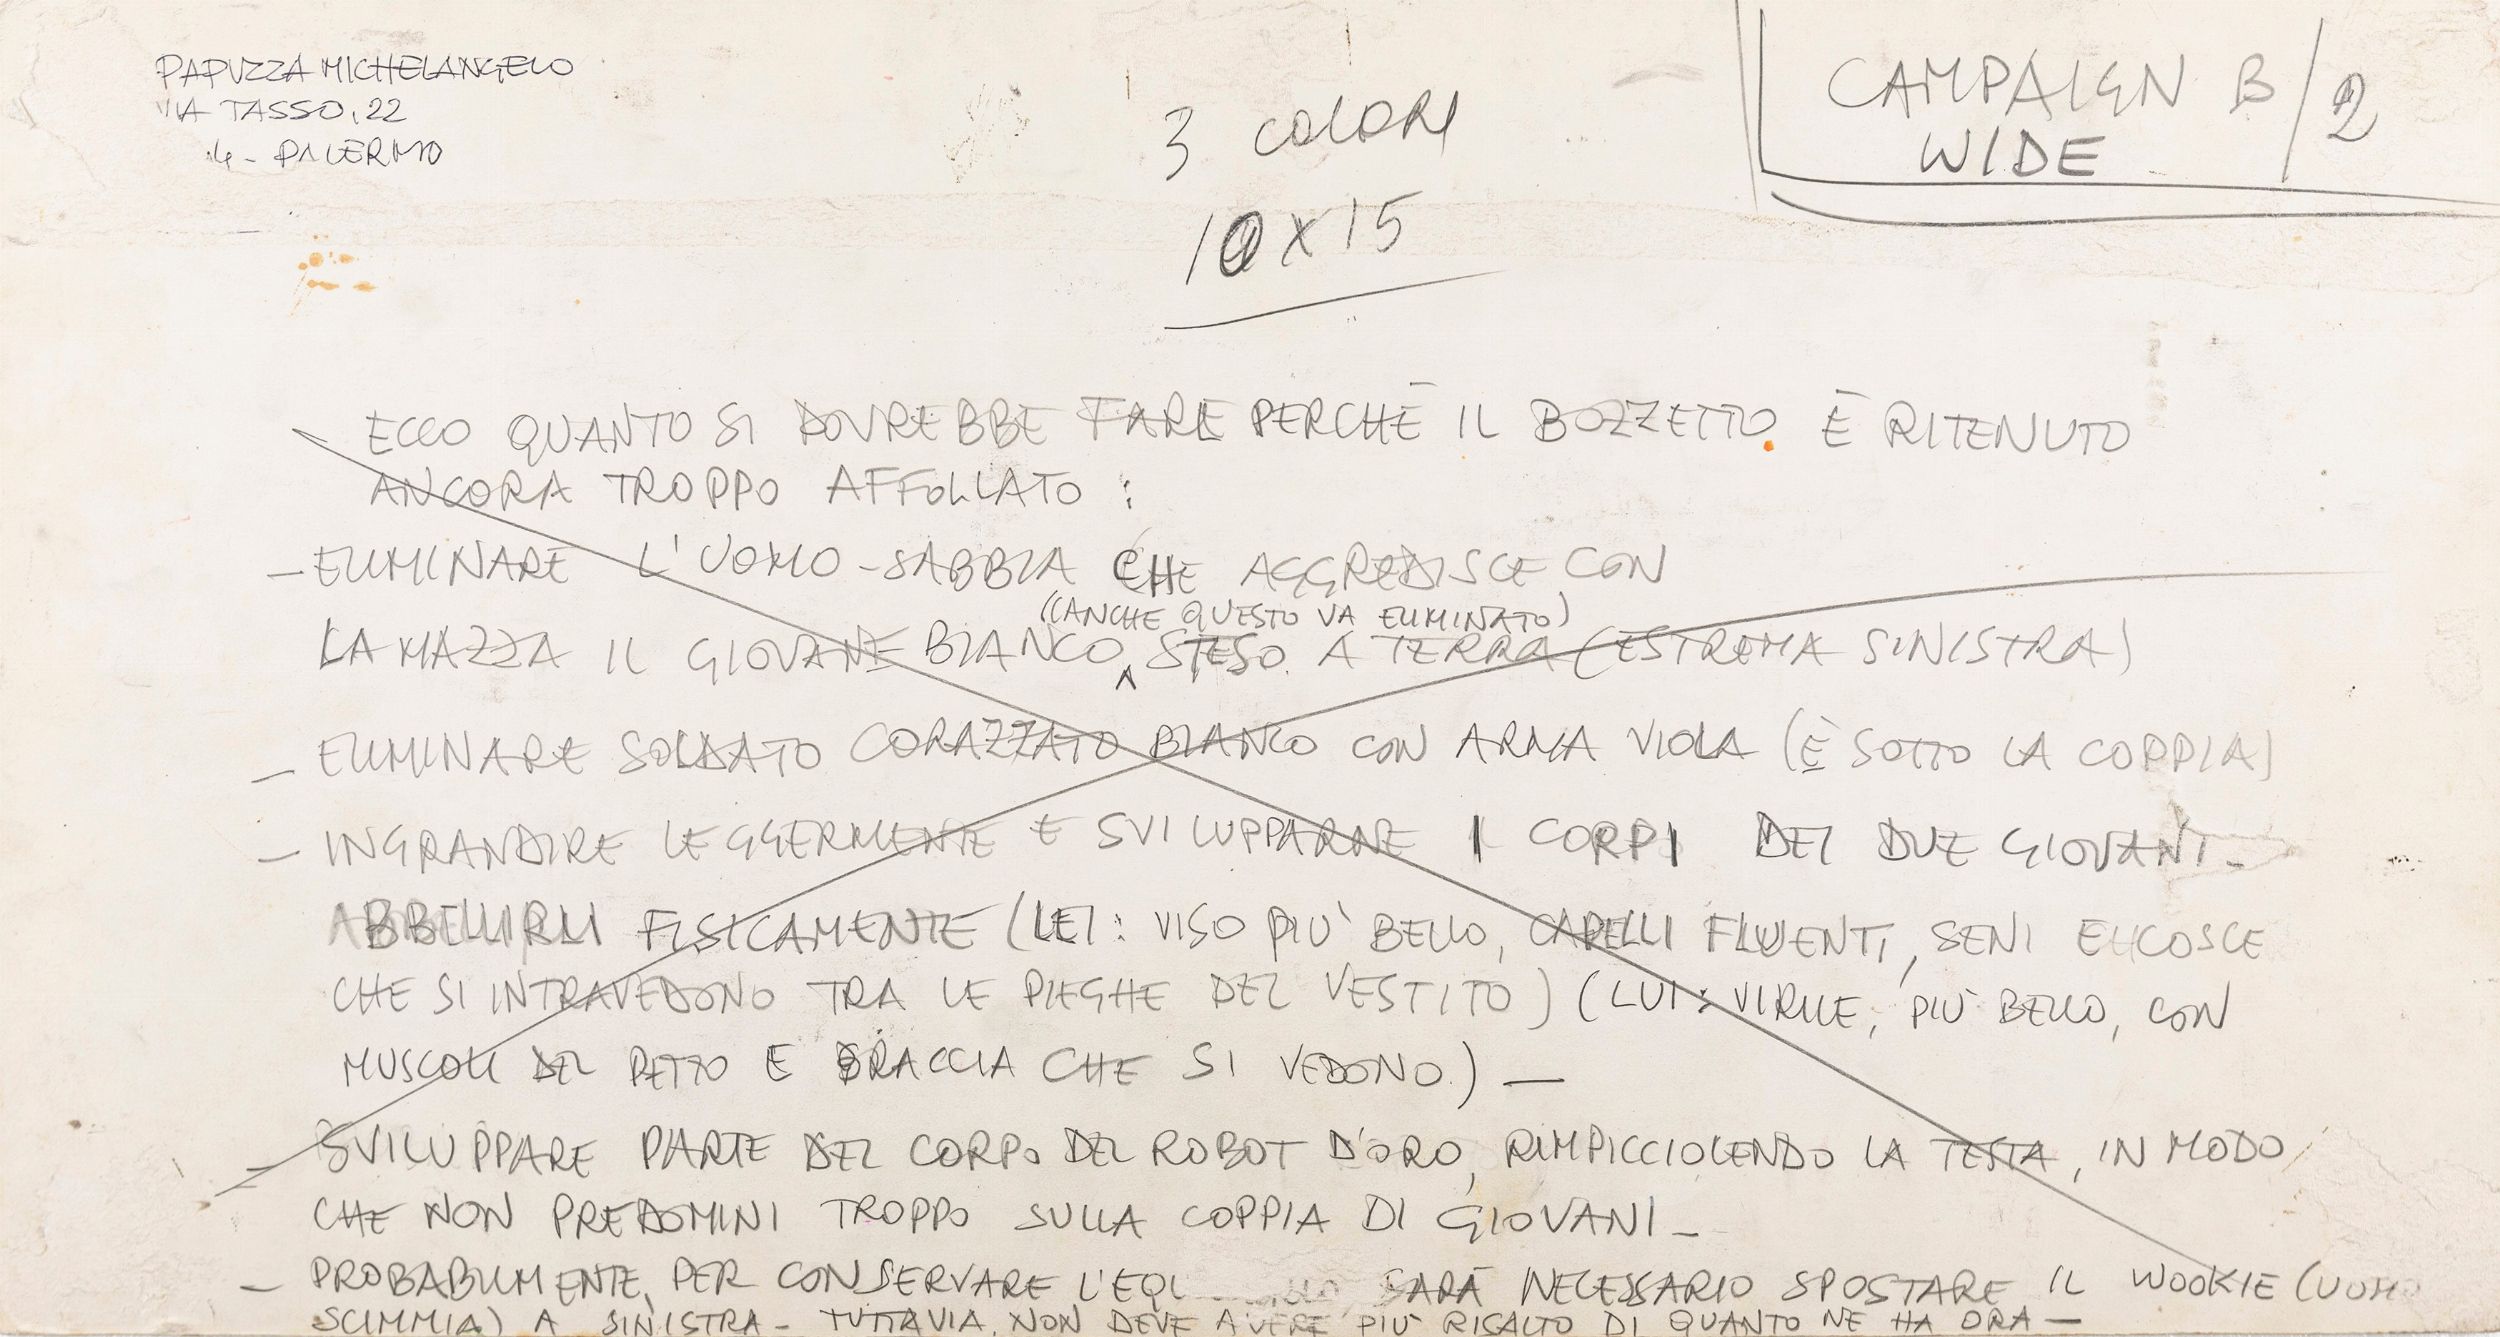 PAPUZZA MICHELANGELO
VIA TASSO, 22
4 - PALERMO
3 COLORI
10 X 15
CAMPAIGN B/2
WIDE
ECCO QUANTO SI DOVREBBE FARE PERCHÈ IL BOZZETTO È RITENUTO
ANCORA TROPPO AFFOLLATO :
- ELIMINARE L'UOMO-SABBIA CHE AGGREDISCE CON
(ANCHE QUESTO VA ELIMINATO)
LA MAZZA IL GIOVANE BIANCO STESO A TERRA (ESTREMA SINISTRA)
- ELIMINARE SOLDATO CORAZZATO BIANCO CON ARMA VIOLA (È SOTTO LA COPPIA)
- INGRANDIRE LEGGERMENTE E SVILUPPARNE I CORPI DEI DUE GIOVANI -
ABBELLIRLI FISICAMENTE (LEI : VISO PIU' BELLO, CAPELLI FLUENTI, SENI E COSCE
CHE SI INTRAVEDONO TRA LE PIEGHE DEL VESTITO) (LUI : VIRILE, PIÙ BELLO, CON
MUSCOLI DEL PETTO E BRACCIA CHE SI VEDONO.) —
- SVILUPPARE PARTE DEL CORPO DEL ROBOT D'ORO, RIMPICCIOLENDO LA TESTA, IN MODO
CHE NON PREDOMINI TROPPO SULLA COPPIA DI GIOVANI -
- PROBABILMENTE, PER CONSERVARE L'EQU SARÀ NECESSARIO SPOSTARE IL WOOKIE (UOMO
SCIMMIA) A SINISTRA - TUTTAVIA, NON DEVE AVERE PIU' RISALTO DI QUANTO NE HA ORA —